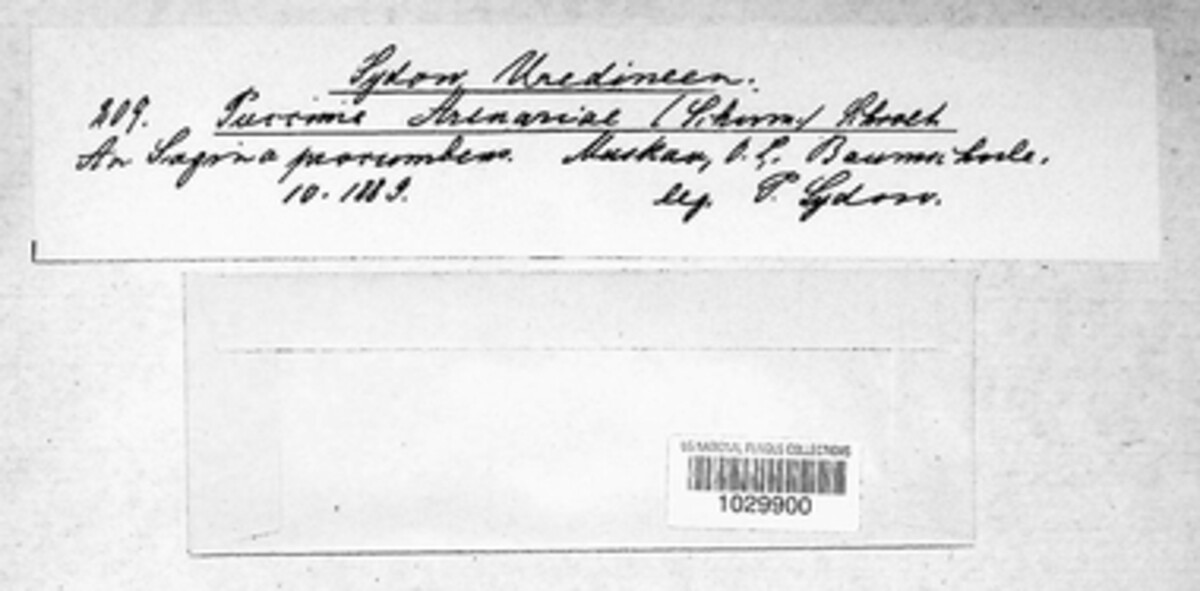 Sydow, Uredineen.
209. Puccinia Arenariae (Schum.) Schroet
An Sagina procumbens. Muskau, O. L. Baumschule.
10. 1889. leg. P. Sydow.
US NATIONAL FUNGUS COLLECTIONS
1029900